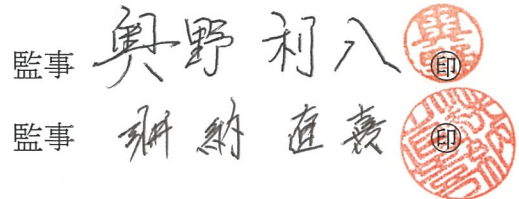 監事 奥野 利八 ㊞
監事 納 直嘉 ㊞